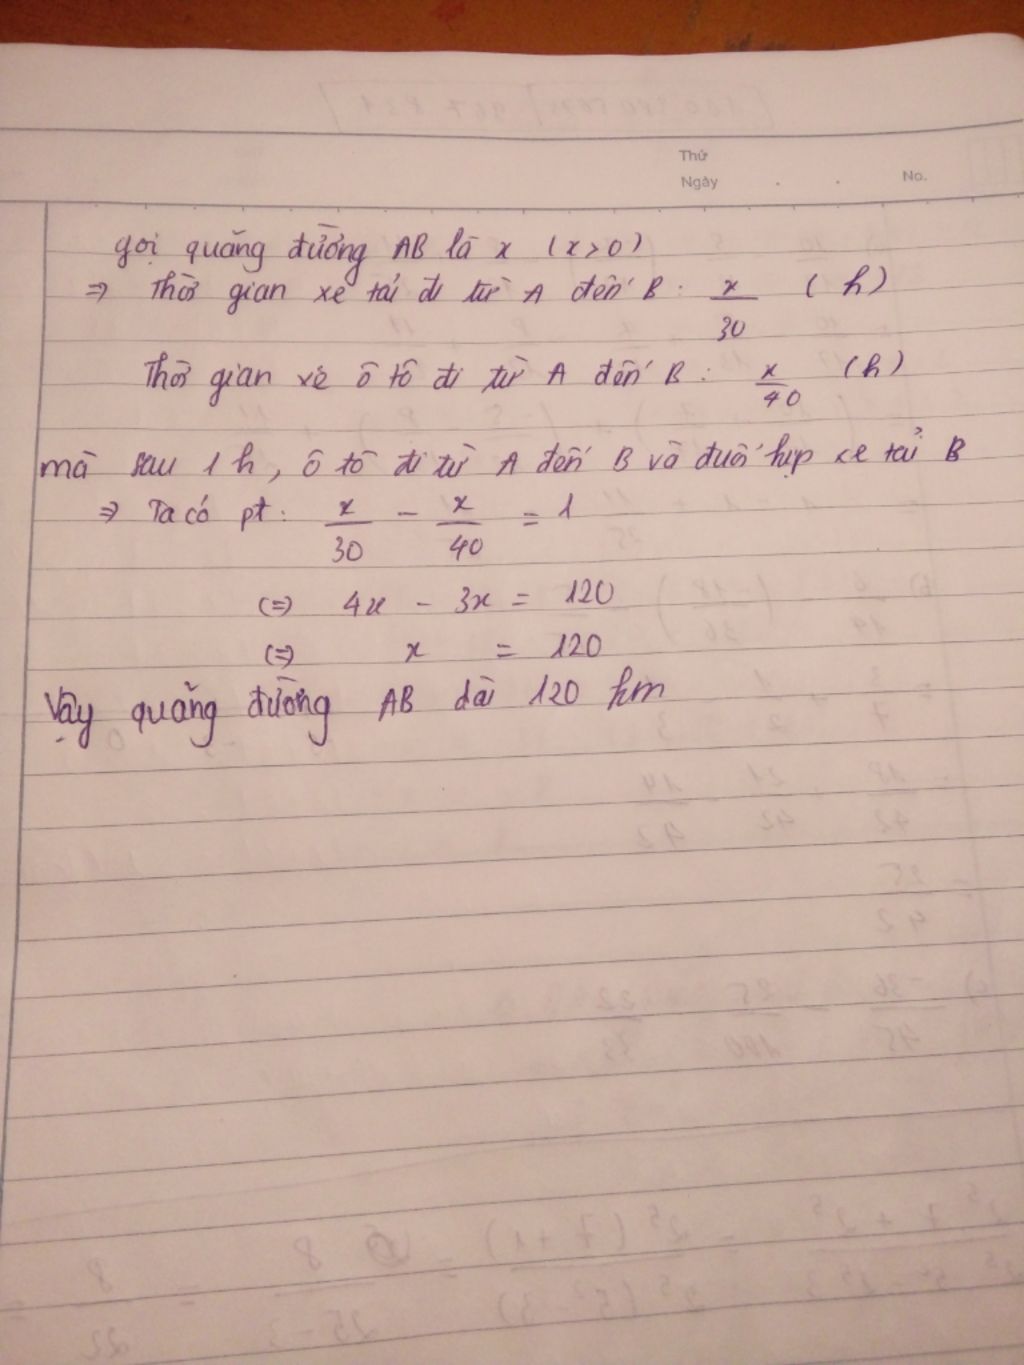 Thứ
Ngày . . No.
gọi quãng đường AB là x (x>0)
=> Thời gian xe tải đi từ A đến B: x/30 (h)
Thời gian xe ô tô đi từ A đến B: x/40 (h)
mà sau 1h, ô tô đi từ A đến B và đuổi kịp xe tải B
=> Ta có pt: x/30 - x/40 = 1
(=) 4x - 3x = 120
(=) x = 120
Vậy quãng đường AB dài 120 km